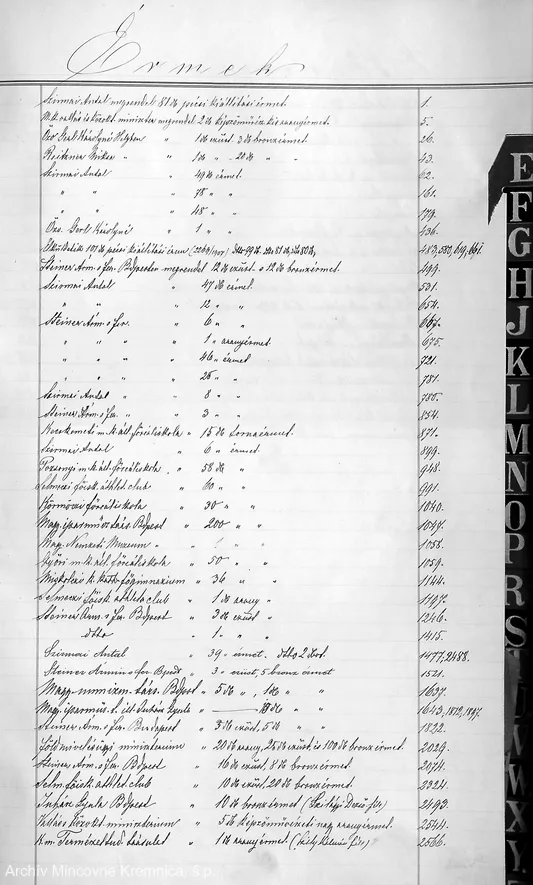 Érmek
Szirmai Antal megrendel 81 db pécsi kiállítási érmet. 1.
M. k. vallás és közokt. miniszter megrendel 2 db képzőművészeti kis aranyérmet. 5.
Özv. Gerl Károlyné " 1 db ezüst 3 db bronz érmet. 26.
" 1 db " 20 db " 43.
Szirmai Antal " 49 db érmet. 62.
" " " 78 " " 161.
" " " 48 " " 179.
Özv. Gerl Károlyné " 1 " " 436.
101 db pécsi kiállítási érem (2269/907)
Steiner Árm. s fer. Budpesten megrendel 12 db ezüst s 12 db bronz érmet. 499.
Szirmai Antal " 47 db érmet. 501.
" " " 12 " " 654.
Steiner Árm. s fer. " 6 " " 667.
" " " " 1 " aranyérmet. 675.
" " " " 46 " érmet 721.
" " " 25 " " 781.
Szirmai Antal " 8 " " 785.
Steiner Árm. s fer. " " 3 " " 854.
Kecskeméti m. k. áll. főreáliskola " 15 db tornaérmet. 871.
Szirmai Antal " 6 " érmet. 899.
Pozsonyi m. k. áll. főreáliskola " 58 db " 948.
Selmeczi főisk. athlet. club " 60 " " 991.
Körmöczi főreáliskola " 30 " " 1040.
Magy. iparműv. társ. Bpest " 200 " " 1047.
Magy. Nemzeti Muzeum " " " 1056.
Győri m. k. áll. főreáliskola " 50 " " 1059.
Miskolczi k. kath. főgimnazium " 36 " " 1144.
Selmeczi főisk. athleta club " 1 db arany " 1197.
Steiner Árm. s fer. Bdpest " 3 db ezüst " 1246.
dtto " 1 " " " 1415.
Szirmai Antal " 39 " érmet. dtto 2 dbot. 1477, 2488.
Steiner Ármin s fer. Bpest " 3 " ezüst, 5 bronz érmet 1521.
Magy. numizm. társ. Bdpest " 5 db ", 1 db " " 1637.
Magy. iparműv. " 10 db " " 1643, 1812, 1897.
Steiner Árm. s fer. Budapest " 3 db ezüst, 5 db " " 1822.
Földmívelésügyi miniszterium " 20 db arany, 25 db ezüst és 100 db bronz érmet. 2029.
Steiner Árm. s fer. Bdpest " 16 db ezüst, 8 db bronzérmet. 2074.
Selm. főisk. athlet. club " 10 db ezüst, 20 db bronzérmet. 2324.
Gyula Bdpest " 10 db bronz érmet 2493.
Vallás és közokt. miniszterium " 5 db képzőművészeti nagy aranyérmet. 2544.
K. m. Természettud. társulat " 1 db aranyérmet 2566.
E
F
G
H
J
K
L
M
N
O
P
R
S
T
W
X
Y
Z
Archív Mincovne Kremnica, š.p.